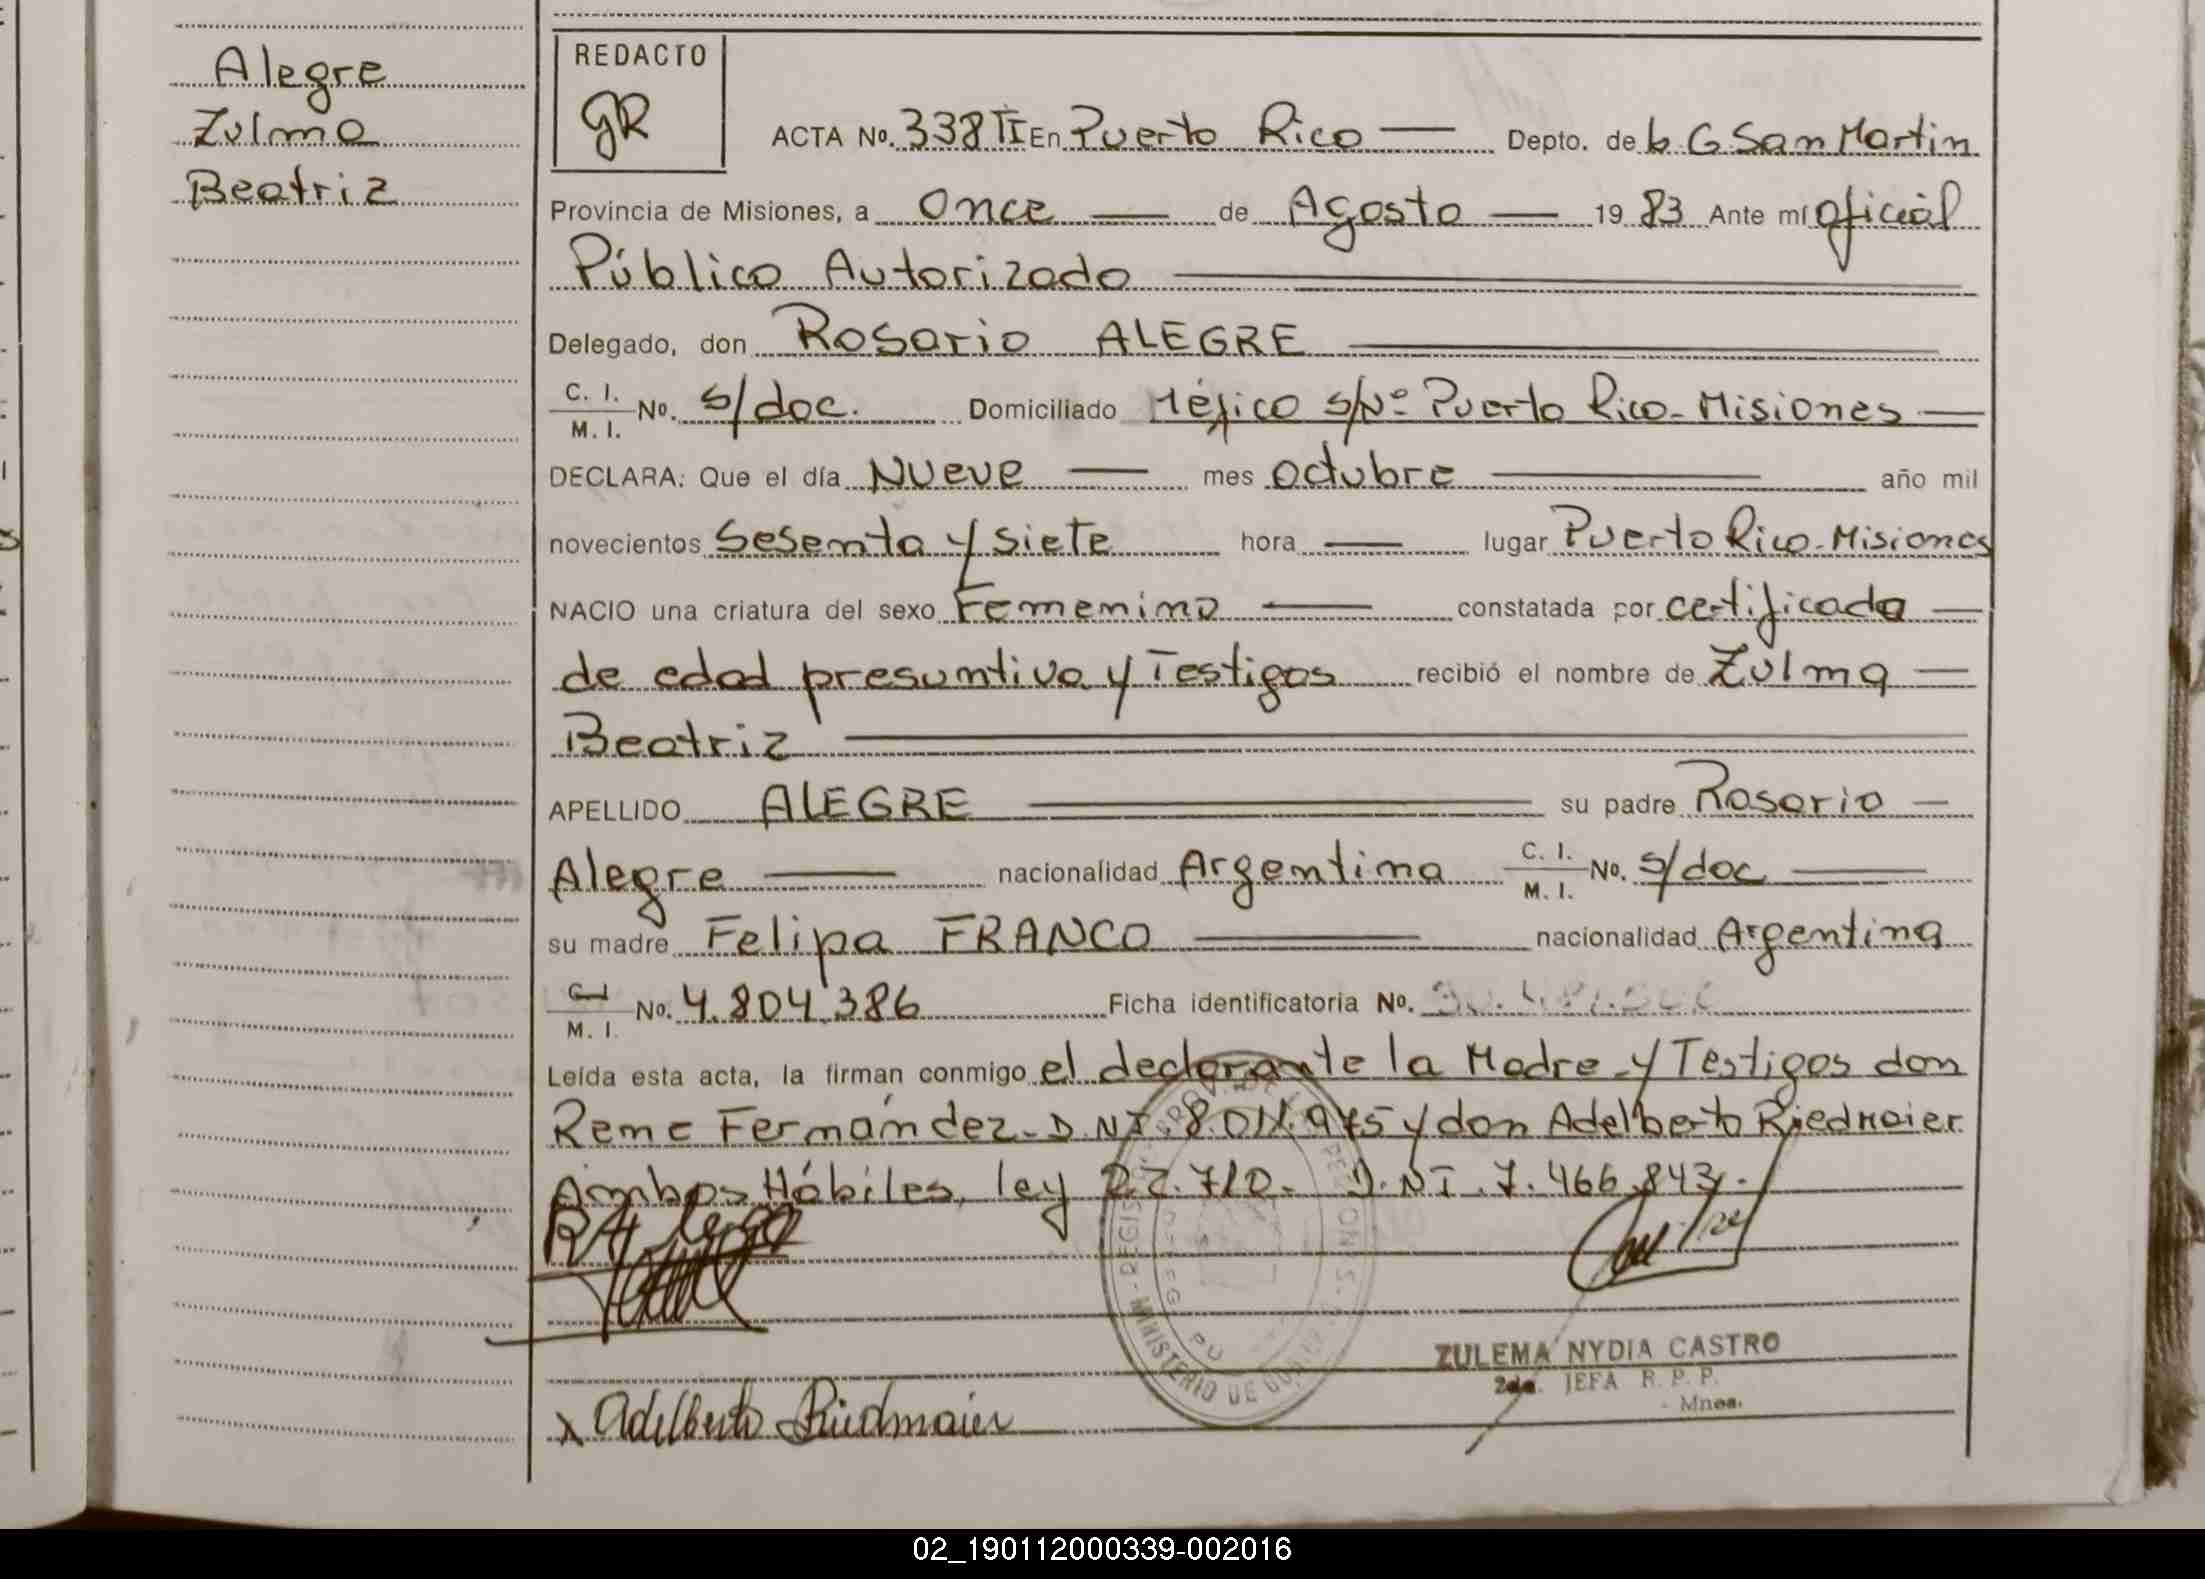 Alegre
Zulma
Beatriz
REDACTO
GR
ACTA No. 338 TI En Puerto Rico Depto. de L. G. San Martin
Provincia de Misiones, a Once de Agosto 1983 Ante mí oficial
Público Autorizado
Delegado, don Rosario ALEGRE
C. I. M. I. No. s/doc. Domiciliado Méjico s/Nº Puerto Rico-Misiones
DECLARA: Que el día Nueve mes octubre año mil
novecientos Sesenta y siete hora lugar Puerto Rico-Misiones
NACIO una criatura del sexo Femenino constatada por certificado
de edad presuntiva y Testigos recibió el nombre de Zulma
Beatriz
APELLIDO ALEGRE su padre Rosario
Alegre nacionalidad Argentina C. I. M. I. No. s/doc
su madre Felipa FRANCO nacionalidad Argentina
C. I. M. I. No. 4.804.386 Ficha identificatoria No.
Leída esta acta, la firman conmigo el declarante la Madre y Testigos don
Rene Fernández - D.NI. y don Adelberto Riedmaier
Ambos Hábiles, ley D.NI. 7.466.843.-
ZULEMA NYDIA CASTRO
2da. JEFA R. P. P.
- Mnes.
x Adelberto Riedmaier
MINISTERIO DE
02_190112000339-002016